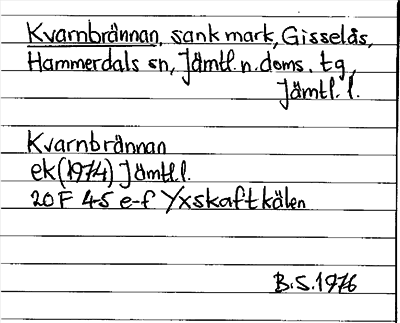 Kvarnbrännan, sank mark, Gisselås,
Hammerdals sn, Jämtl. n. doms. tg,
Jämtl. l.
Kvarnbrännan
ek (1974) Jämtl.l.
20 F 4-5 e-f Yxskaftkälen
B.S. 1976